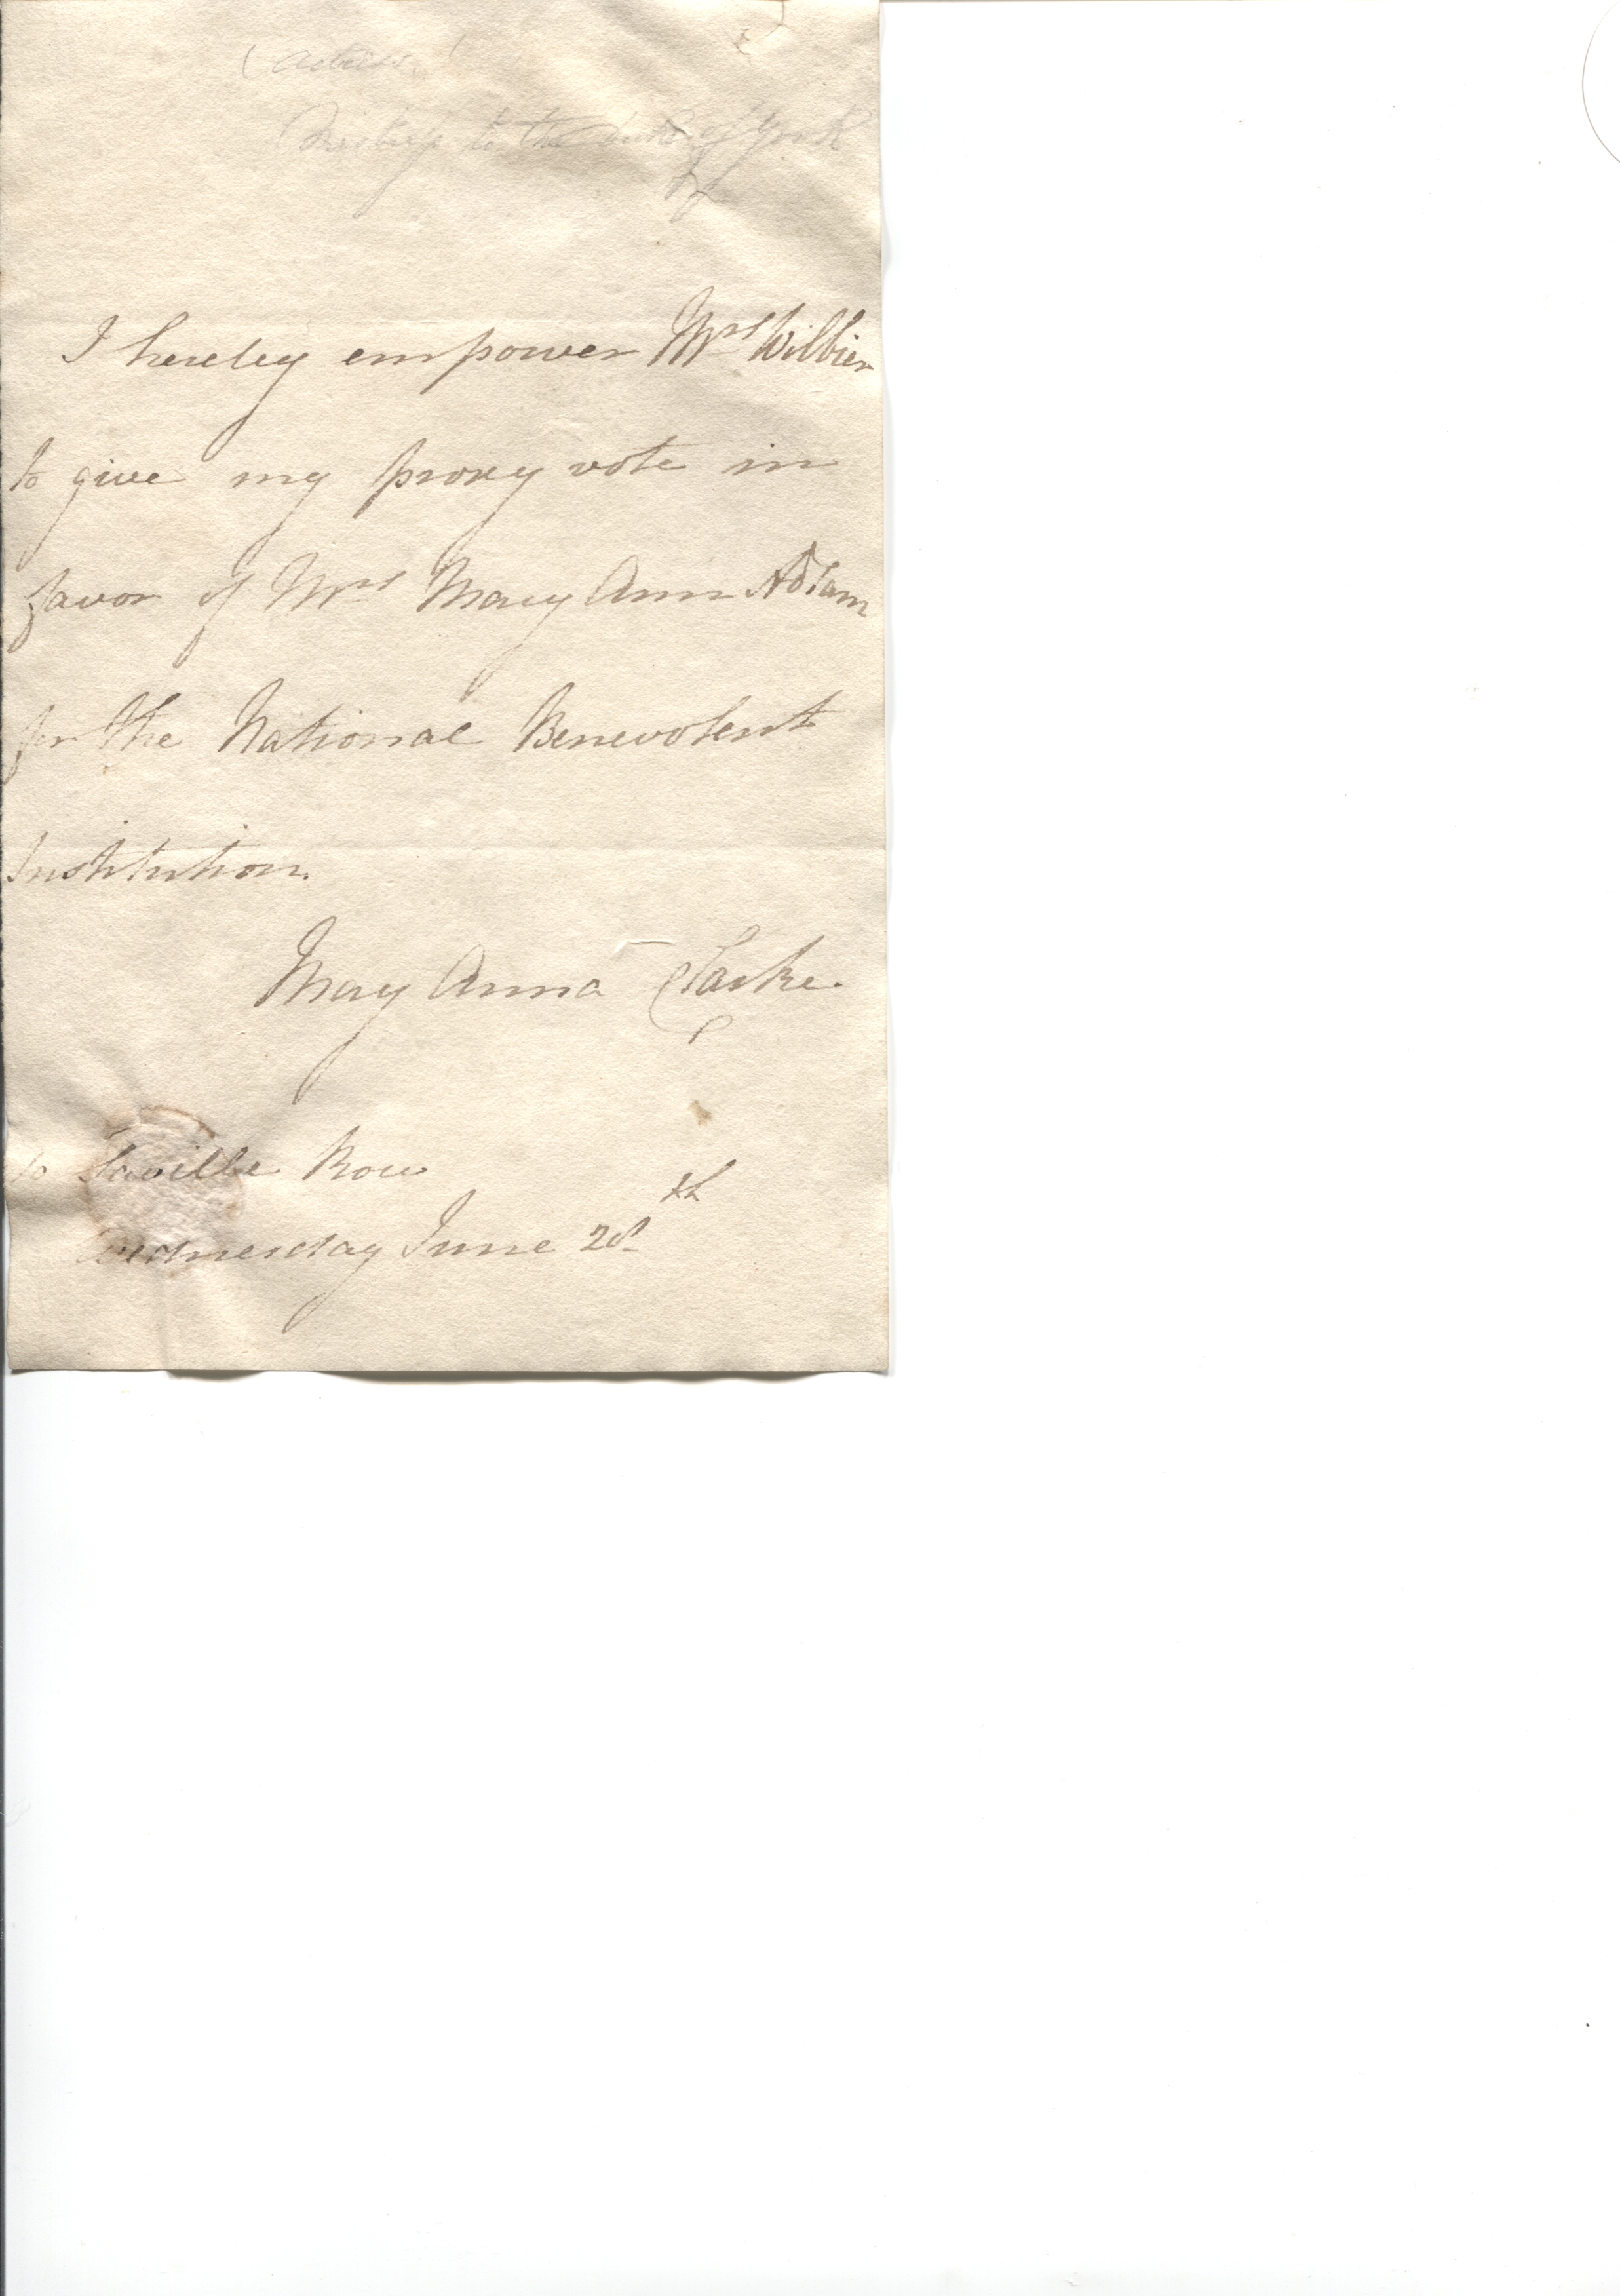 (actress.)
Mistress to the Duke of York
I hereby empower Mrs
to give my proxy vote in
favor of Mrs Mary Ann Adam
for the National Benevolent
Institution.
Mary Anna Clarke.
Saville Row
Wednesday June 28th